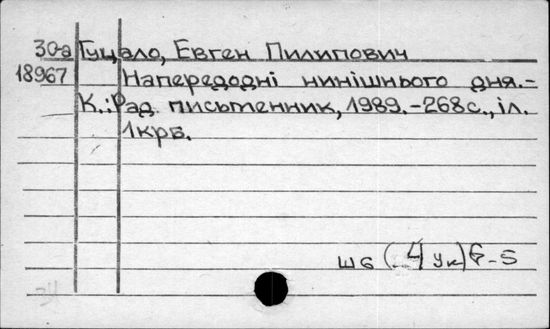 30-а Гуцало, Евген Пилипович
18967 Напередодні нинішнього дня.-
К.:Рад. письменник, 1989.-268с., іл.
1крб.
Ш6 (.4Ук)6-5